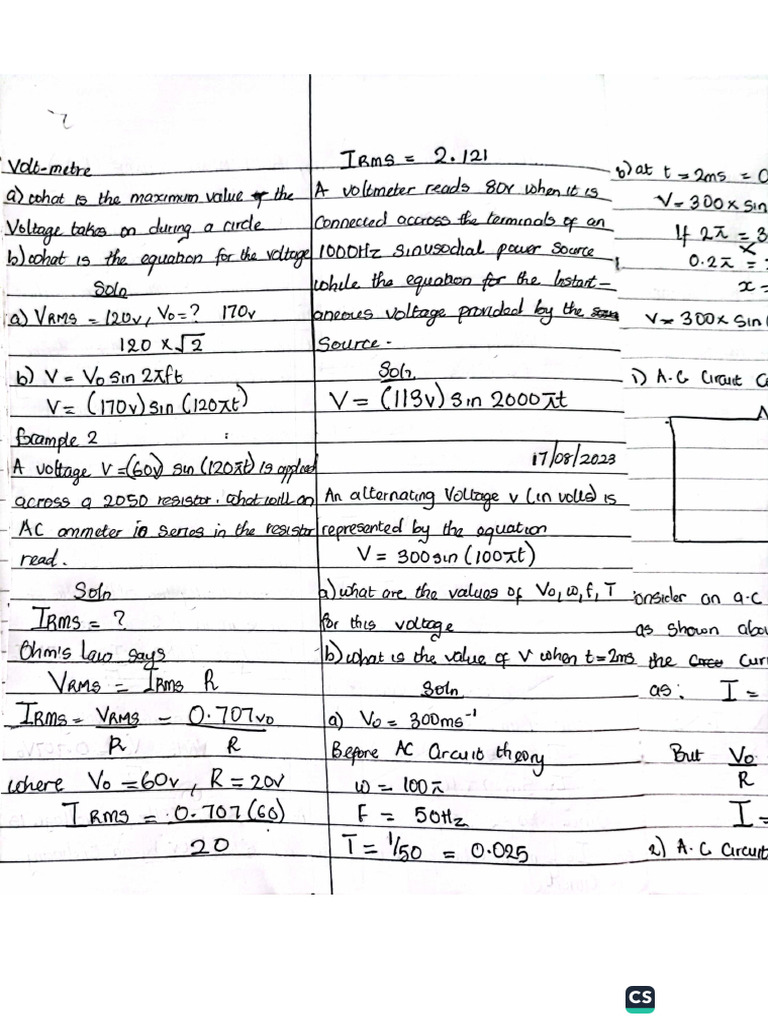 Volt-metre
a) what is the maximum value of the
Voltage takes on during a circle
b) what is the equation for the voltage
Soln
a) VRMS = 120v, Vo = ? 170v
120 × √2
b) V = Vo sin 2πft
V = (170v) sin (120πt)
Example 2
A voltage V = (60v) sin (120πt) is applied
across a 2050 resistor. What will an
AC ammeter in series in the resistor
read.
Soln
IRMS = ?
Ohm's law says
VRMS = IRMS R
IRMS = VRMS/R = 0.707vo/R
where Vo = 60v, R = 20v
IRMS = 0.707(60)
20
IRMS = 2.121
A voltmeter reads 80v when it is
Connected accross the terminals of an
1000Hz sinusodial power source
while the equation for the Instart-
aneous voltage provided by the
Source.
Soln
V = (113v) sin 2000πt
17/08/2023
An alternating Voltage v (in volts) is
represented by the equation
V = 300 sin (100πt)
a) what are the values of Vo, ω, f, T
for this voltage
b) what is the value of V when t = 2ms
Soln
a) Vo = 300ms⁻¹
Before AC Circuit theory
ω = 100π
F = 50Hz
T = 1/50 = 0.025
b) at t = 2ms = 0
V = 300 × sin
If 2π = 3
0.2π =
x =
V = 300 × sin
1) A.C Circuit C
onsider an a.c
as shown abov
the curr
as: I =
But Vo
R
I =
2) A.C Circuit
CS